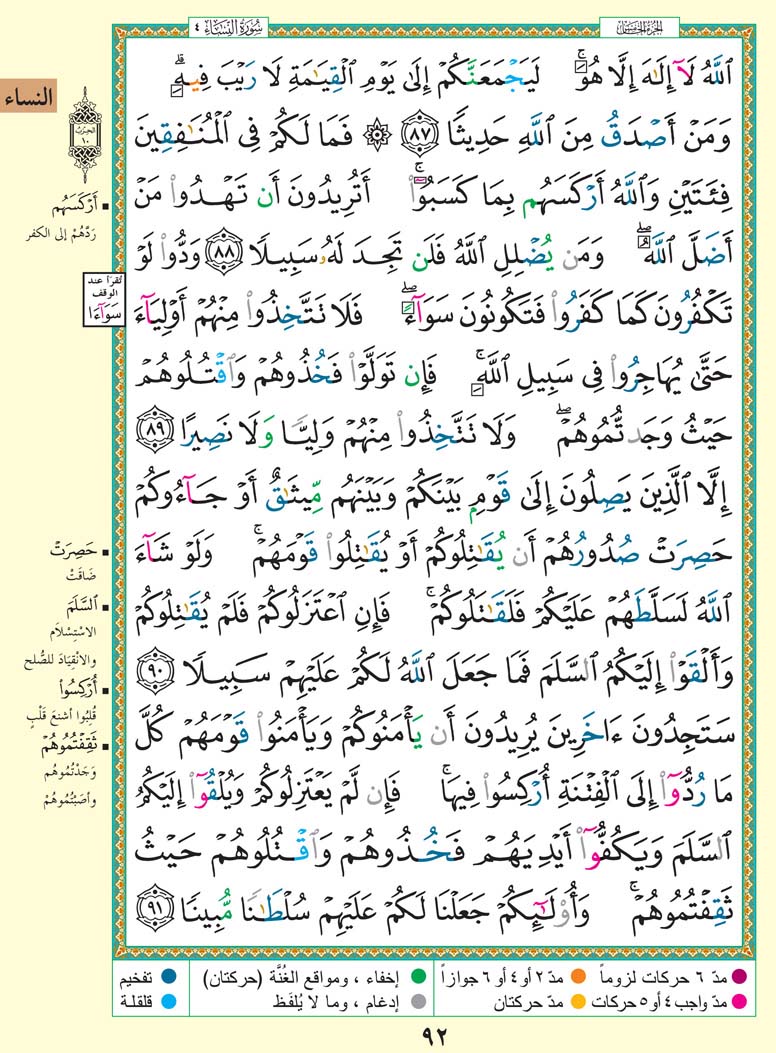 سُورَةُ النِّسَاءِ ٤
الجزء الخامس
ٱللَّهُ لَآ إِلَٰهَ إِلَّا هُوَ ۚ لَيَجْمَعَنَّكُمْ إِلَىٰ يَوْمِ ٱلْقِيَٰمَةِ لَا رَيْبَ فِيهِ ۗ
وَمَنْ أَصْدَقُ مِنَ ٱللَّهِ حَدِيثًا ٨٧ ۞ فَمَا لَكُمْ فِى ٱلْمُنَٰفِقِينَ
فِئَتَيْنِ وَٱللَّهُ أَرْكَسَهُم بِمَا كَسَبُوٓا۟ ۚ أَتُرِيدُونَ أَن تَهْدُوا۟ مَنْ
أَضَلَّ ٱللَّهُ ۖ وَمَن يُضْلِلِ ٱللَّهُ فَلَن تَجِدَ لَهُۥ سَبِيلًا ٨٨ وَدُّوا۟ لَوْ
تَكْفُرُونَ كَمَا كَفَرُوا۟ فَتَكُونُونَ سَوَآءً ۖ فَلَا تَتَّخِذُوا۟ مِنْهُمْ أَوْلِيَآءَ
حَتَّىٰ يُهَاجِرُوا۟ فِى سَبِيلِ ٱللَّهِ ۚ فَإِن تَوَلَّوْا۟ فَخُذُوهُمْ وَٱقْتُلُوهُمْ
حَيْثُ وَجَدتُّمُوهُمْ ۖ وَلَا تَتَّخِذُوا۟ مِنْهُمْ وَلِيًّا وَلَا نَصِيرًا ٨٩
إِلَّا ٱلَّذِينَ يَصِلُونَ إِلَىٰ قَوْمٍۭ بَيْنَكُمْ وَبَيْنَهُم مِّيثَٰقٌ أَوْ جَآءُوكُمْ
حَصِرَتْ صُدُورُهُمْ أَن يُقَٰتِلُوكُمْ أَوْ يُقَٰتِلُوا۟ قَوْمَهُمْ ۚ وَلَوْ شَآءَ
ٱللَّهُ لَسَلَّطَهُمْ عَلَيْكُمْ فَلَقَٰتَلُوكُمْ ۚ فَإِنِ ٱعْتَزَلُوكُمْ فَلَمْ يُقَٰتِلُوكُمْ
وَأَلْقَوْا۟ إِلَيْكُمُ ٱلسَّلَمَ فَمَا جَعَلَ ٱللَّهُ لَكُمْ عَلَيْهِمْ سَبِيلًا ٩٠
سَتَجِدُونَ ءَاخَرِينَ يُرِيدُونَ أَن يَأْمَنُوكُمْ وَيَأْمَنُوا۟ قَوْمَهُمْ كُلَّ
مَا رُدُّوٓا۟ إِلَى ٱلْفِتْنَةِ أُرْكِسُوا۟ فِيهَا ۚ فَإِن لَّمْ يَعْتَزِلُوكُمْ وَيُلْقُوٓا۟ إِلَيْكُمُ
ٱلسَّلَمَ وَيَكُفُّوٓا۟ أَيْدِيَهُمْ فَخُذُوهُمْ وَٱقْتُلُوهُمْ حَيْثُ
ثَقِفْتُمُوهُمْ ۚ وَأُو۟لَٰٓئِكُمْ جَعَلْنَا لَكُمْ عَلَيْهِمْ سُلْطَٰنًا مُّبِينًا ٩١
النساء
الحزب
١٠
أَرْكَسَهُم
رَدَّهُمْ إلى الكفر
تُقرَأ عند
الوقف
سَوَآءَا
حَصِرَتْ
ضَاقَتْ
ٱلسَّلَمَ
الاسْتِسْلَام
والانْقِيَادَ للصُّلح
أُرْكِسُوا۟
قُلِبُوا أشنعَ قَلْبٍ
ثَقِفْتُمُوهُمْ
وَجَدْتُمُوهُم
وأصَبْتُمُوهُمْ
مدّ ٦ حركات لزوماً
مدّ ٢ أو ٤ أو ٦ جوازاً
إخفاء ، ومواقع الغُنَّة (حركتان)
تفخيم
مدّ واجب ٤ أو ٥ حركات
مدّ حركتان
إدغام ، وما لا يُلفَظ
قلقلة
٩٢